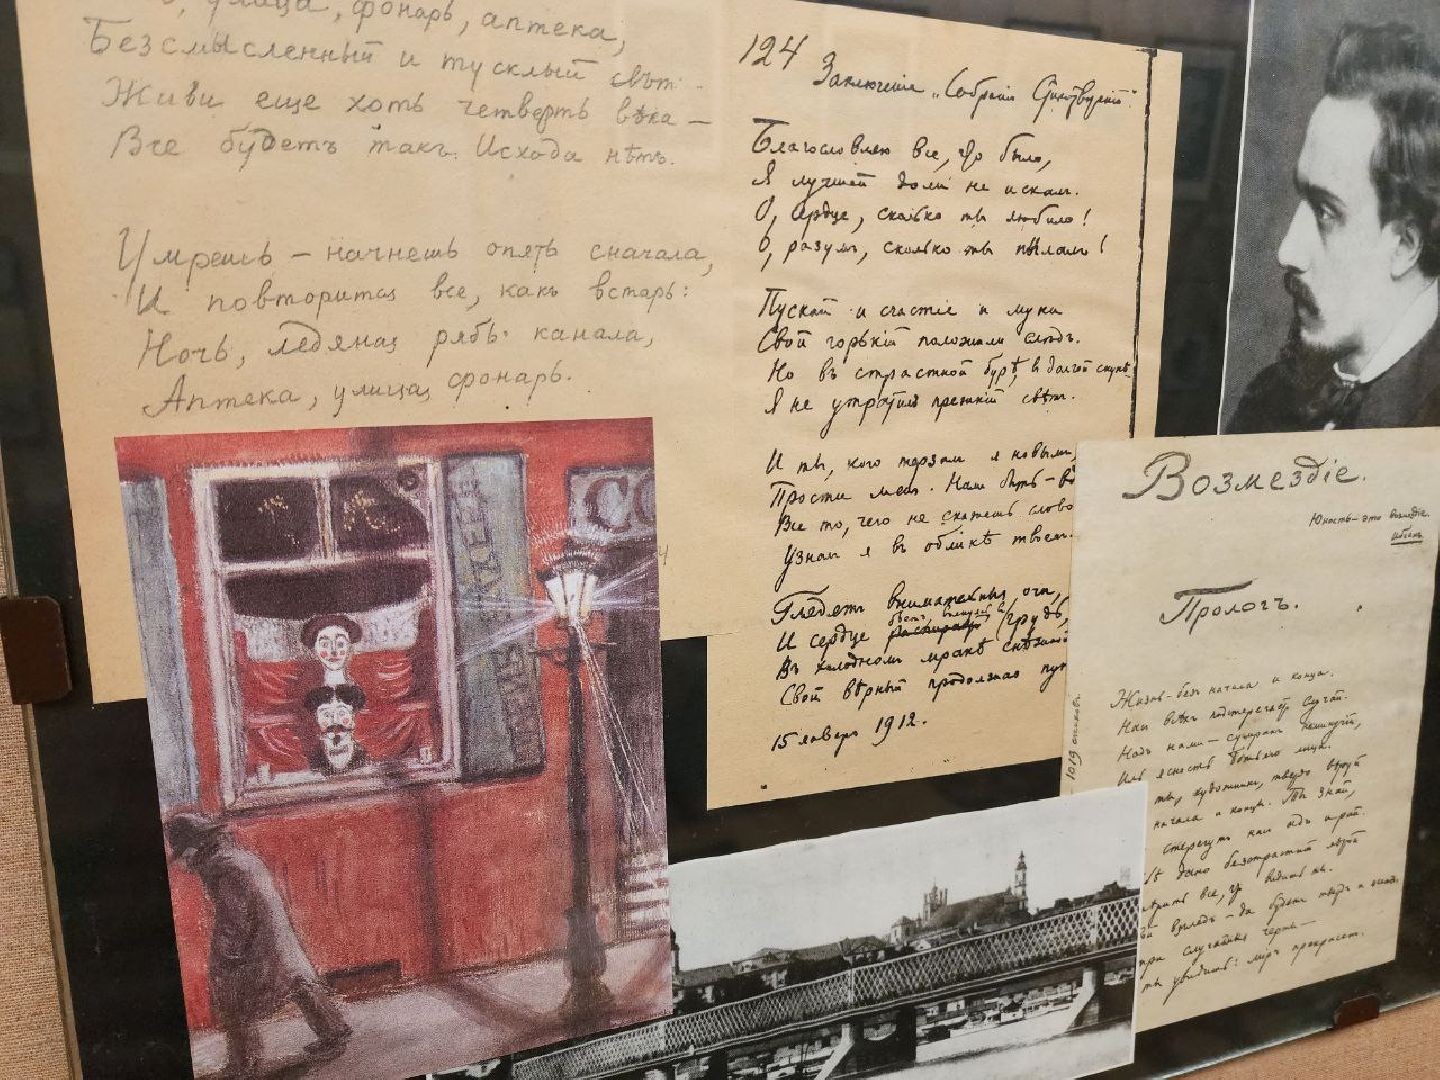 улица, фонарь, аптека,
Безсмысленный и тусклый свѣтъ.
Живи еще хоть четверть вѣка –
Все будетъ такъ. Исхода нѣтъ.
Умрешь – начнешь опять сначала,
И повторится все, какъ встарь:
Ночь, ледяная рябь канала,
Аптека, улица, фонарь.
124
Заключеніе „Собранія Стихотвореній“.
Благословляю все, что было,
Я лучшей доли не искалъ.
О, сердце, сколько ты любило!
О, разумъ, сколько ты пылалъ!
Пускай и счастіе и муки
Свой горькій положили слѣдъ.
Но въ страстной бурѣ, въ долгой скукѣ
Я не утратилъ прежній свѣтъ.
И ты, кого терзалъ я новымъ,
Прости меня. Намъ быть –
Все то, чего не скажешь слово
Узналъ я въ обликѣ твоемъ.
Глядятъ внимательныя очи,
И сердце бьетъ, волнуясь, въ грудь,
Въ холодномъ мракѣ снѣжной
Свой вѣрный продолжаю пу
15 январь 1912.
СО
Возмездіе.
Юность – это возмездіе.
Ибсенъ
Прологъ.
1019 стиховъ
Жизнь – безъ начала и конца.
Насъ всѣхъ подстерегаетъ случай.
Надъ нами – сумракъ неминучій,
Иль ясность Божьяго лица.
ты, художникъ, твердо вѣруй
начала и концы. Ты знай,
стерегутъ насъ адъ и рай.
дано безстрастной мѣрой
мѣрить все, что видишь ты.
взглядъ – да будетъ твердъ и ясенъ.
три случайныя черты –
ты увидишь: міръ прекрасенъ.